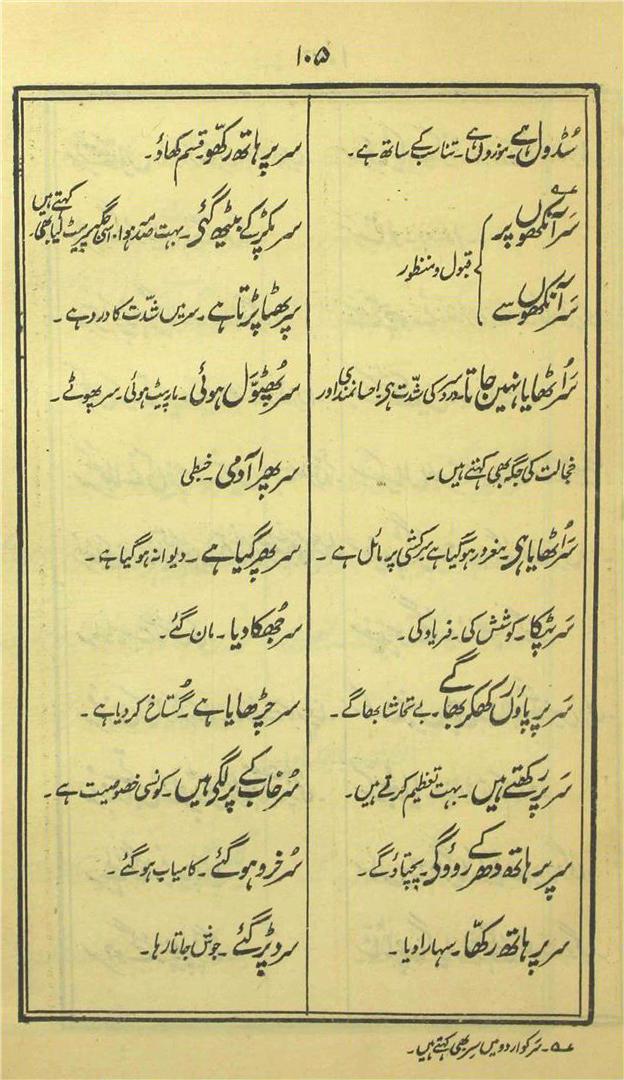 ۱۰۵
سُڈول ہے۔ موزوں ہے۔ تناسب کے ساتھ ہے۔
سَر آنکھوں پر
سَر آنکھوں سے
قبول و منظور
سَر اُٹھایا نہیں جاتا۔ درد سر کی شدّت ہی۔ احسانمندی اور
خجالت کی جگہ بھی کہتے ہیں۔
سَر اُٹھایا ہی۔ مغرور ہوگیا ہے۔ سرکشی پر مائل ہے۔
سَر پٹکا۔ کوشش کی۔ فریاد کی۔
سَر پر پاؤں رکھکر بھاگے۔ بے تحاشا بھاگے۔
سَر پر رکھتے ہیں۔ بہت تعظیم کرتے ہیں۔
سر پر ہاتھ دھر کے روؤگی۔ پچتاؤگے۔
سر پر ہاتھ رکھّا۔ سہارا دیا۔
سر پر ہاتھ رکھّو۔ قسم کھاؤ۔
سر پکڑ کے بیٹھ گئی۔ بہت صدمہ ہوا۔ اسی جگہ سر پیٹ لیا بھی کہتے ہیں
سر پھٹا پڑتا ہے۔ سر میں شدّت کا درد ہے۔
سر پُھٹوَّل ہوئی۔ مار پیٹ ہوئی۔ سر پھوٹے۔
سر پھرا آدمی۔ خبطی
سر پھر گیا ہے۔ دیوانہ ہوگیا ہے۔
سر جُھکا دیا۔ مان گئے۔
سر چڑھایا ہے۔ گستاخ کر دیا ہے۔
سُرخاب کے پر لگی ہیں۔ کونسی خصوصیت ہے۔
سُرخرو ہوگئے۔ کامیاب ہوگئے۔
سرد پڑ گئے۔ جوش جاتا رہا۔
سَر کو اردو میں سِر بھی کہتے ہیں۔